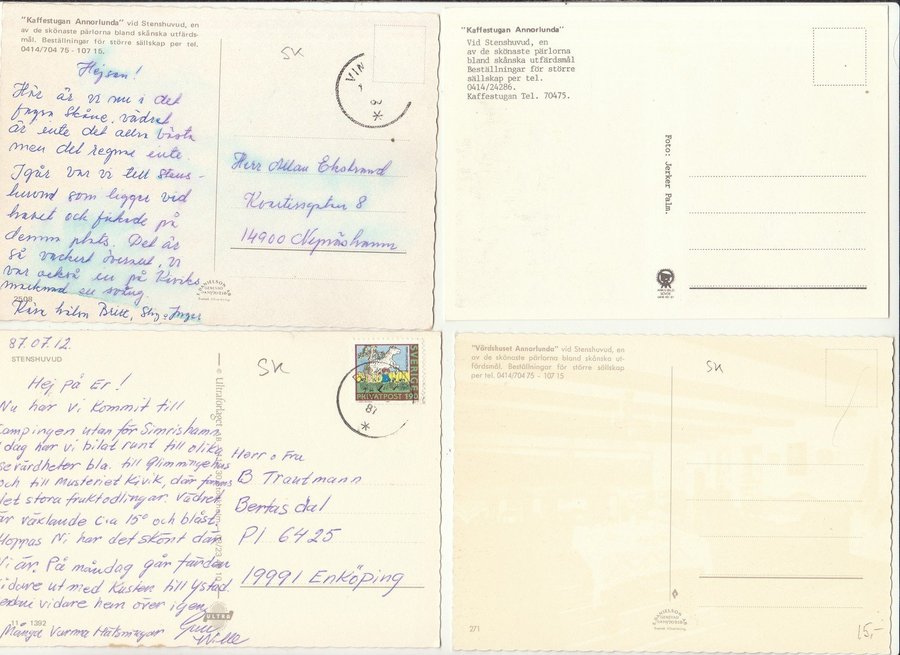 "Kaffestugan Annorlunda" vid Stenshuvud, en
av de skönaste pärlorna bland skånska utfärds-
mål. Beställningar för större sällskap per tel.
0414/704 75 - 107 15.
SK
VIN
Hejsan!
Här är vi nu i det
fagra Skåne. vädret
är ente det allra bästa
men det regnar ente.
Igår var vi till Stens-
huvud som ligger vid
havet och fikade på
denna plats. Det är
så vackert överallt. Vi
var också en på Kiviks
marknad en sväng.
Britt, Stig o Inger
2508
Herr Allan Ekstrand
Kvartersgatan 8
14900 Nynäshamn
F. DANIELSON AB
"Kaffestugan Annorlunda"
Vid Stenshuvud, en
av de skönaste pärlorna
bland skånska utfärdsmål
Beställningar för större
sällskap per tel.
0414/24286.
Kaffestugan Tel. 70475.
Foto: Jerker Palm.
87.07.12
STENSHUVUD
SK
SVERIGE
PRIVATPOST 190
87
Hej på Er!
Nu har vi kommit till
campingen utanför Simrishamn
I dag har vi bilat runt till olika
sevärdheter bla. till Glimmingehus
och till Musteriet Kivik, där finns
det stora fruktodlingar. Vädret
är växlande c:a 15° och blåst.
Hoppas Ni har det skönt där
Ni är. På måndag går färden
vidare ut med Kusten till Ystad
vidare hem över igen
Många Varma Hälsningar
Wille
11 1392
ULTRA
© Ultraförlaget
Herr o Fru
B Trautmann
Bertas dal
Pl 6425
19991 Enköping
"Värdshuset Annorlunda" vid Stenshuvud, en
av de skönaste pärlorna bland skånska ut-
färdsmål. Beställningar för större sällskap
per tel. 0414/704 75 - 107 15
SK
271
F. DANIELSON AB
15,-